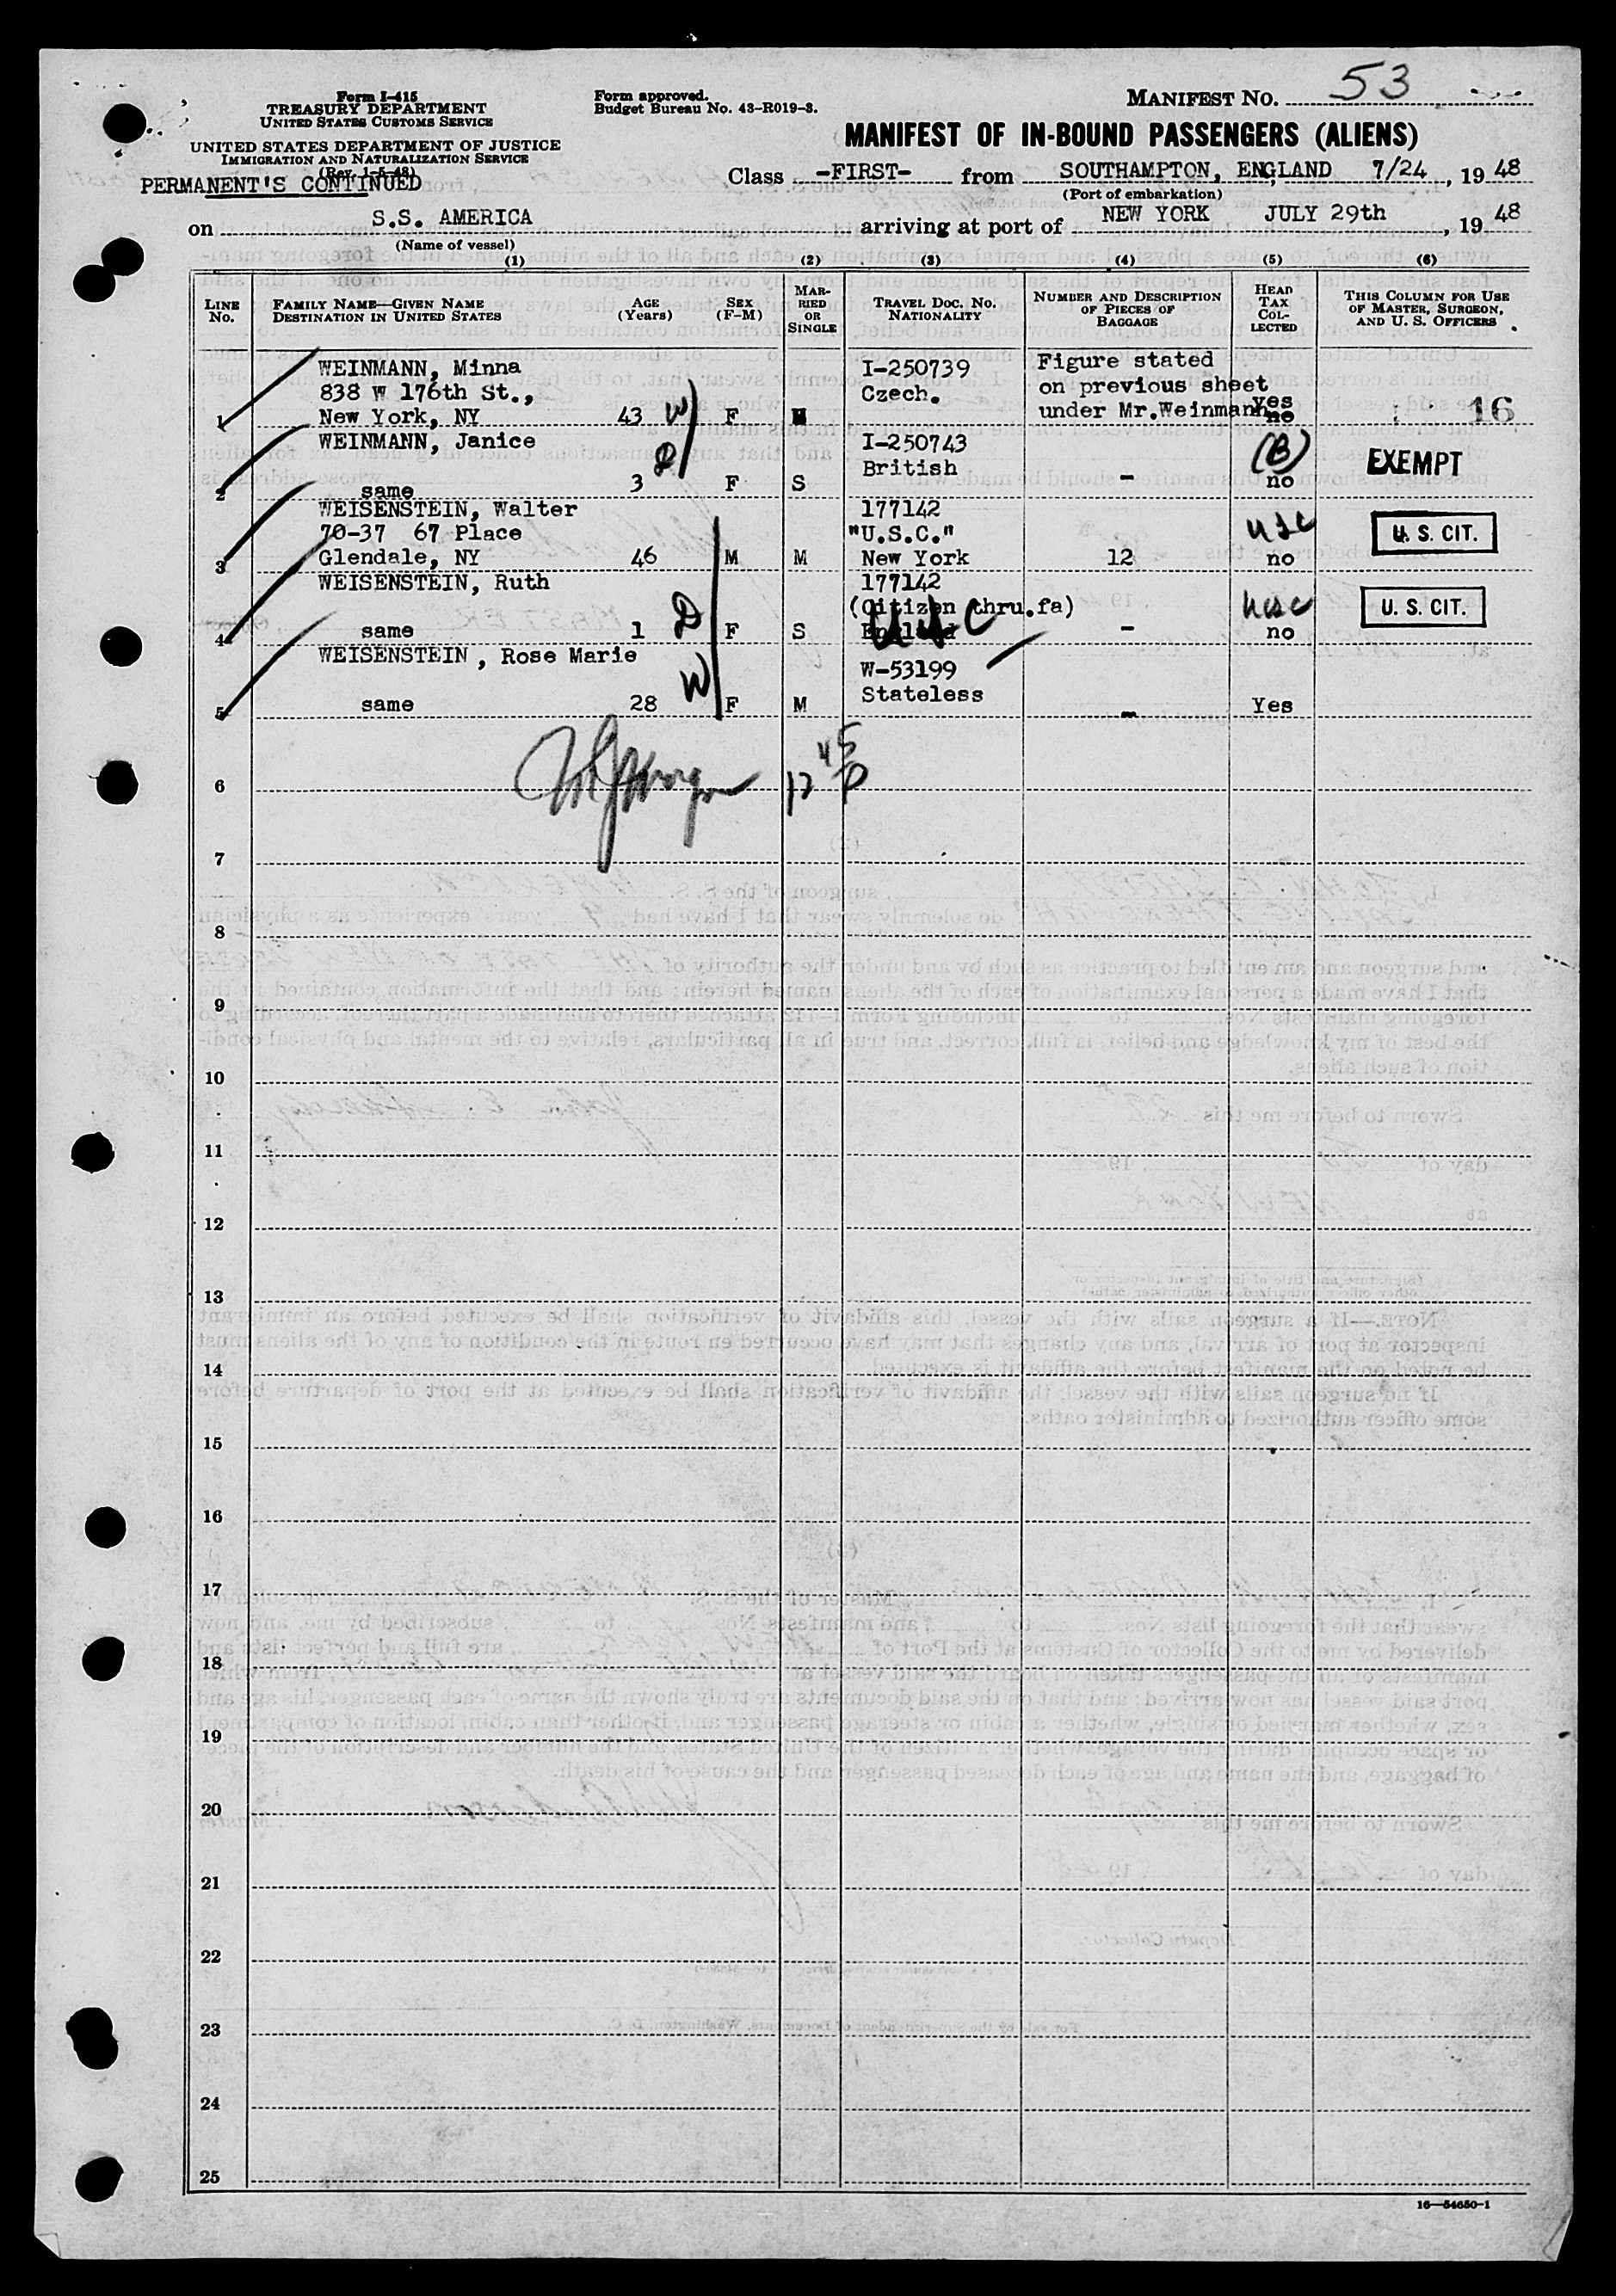 Form I-415
TREASURY DEPARTMENT
UNITED STATES CUSTOMS SERVICE
UNITED STATES DEPARTMENT OF JUSTICE
IMMIGRATION AND NATURALIZATION SERVICE
(Rev. 1-5-48)
PERMANENT'S CONTINUED
Form approved.
Budget Bureau No. 43-R019-3.
MANIFEST NO. 53
MANIFEST OF IN-BOUND PASSENGERS (ALIENS)
Class -FIRST- from SOUTHAMPTON, ENGLAND 7/24, 1948
(Port of embarkation)
on S.S. AMERICA arriving at port of NEW YORK JULY 29th, 1948
(Name of vessel)
(1) (2) (3) (4) (5) (6)
LINE NO.
FAMILY NAME—GIVEN NAME
DESTINATION IN UNITED STATES
AGE (Years)
SEX (F-M)
MARRIED OR SINGLE
TRAVEL DOC. NO.
NATIONALITY
NUMBER AND DESCRIPTION OF PIECES OF BAGGAGE
HEAD TAX COLLECTED
THIS COLUMN FOR USE OF MASTER, SURGEON, AND U. S. OFFICERS
WEINMANN, Minna I-250739 Figure stated
838 W 176th St., Czech. on previous sheet
1 New York, NY 43 W F M under Mr.Weinmann yes no 16
WEINMANN, Janice I-250743 (B) EXEMPT
D British
2 same 3 F S - no
WEISENSTEIN, Walter 177142
70-37 67 Place "U.S.C." usc U. S. CIT.
3 Glendale, NY 46 M M New York 12 no
WEISENSTEIN, Ruth 177142
(Citizen thru.fa) usc U. S. CIT.
4 same 1 D F S England USC - no
WEISENSTEIN, Rose Marie W-53199
W Stateless
5 same 28 F M - Yes
12 45 P
6
7
8
9
10
11
12
13
14
15
16
17
18
19
20
21
22
23
24
25
16—54650-1